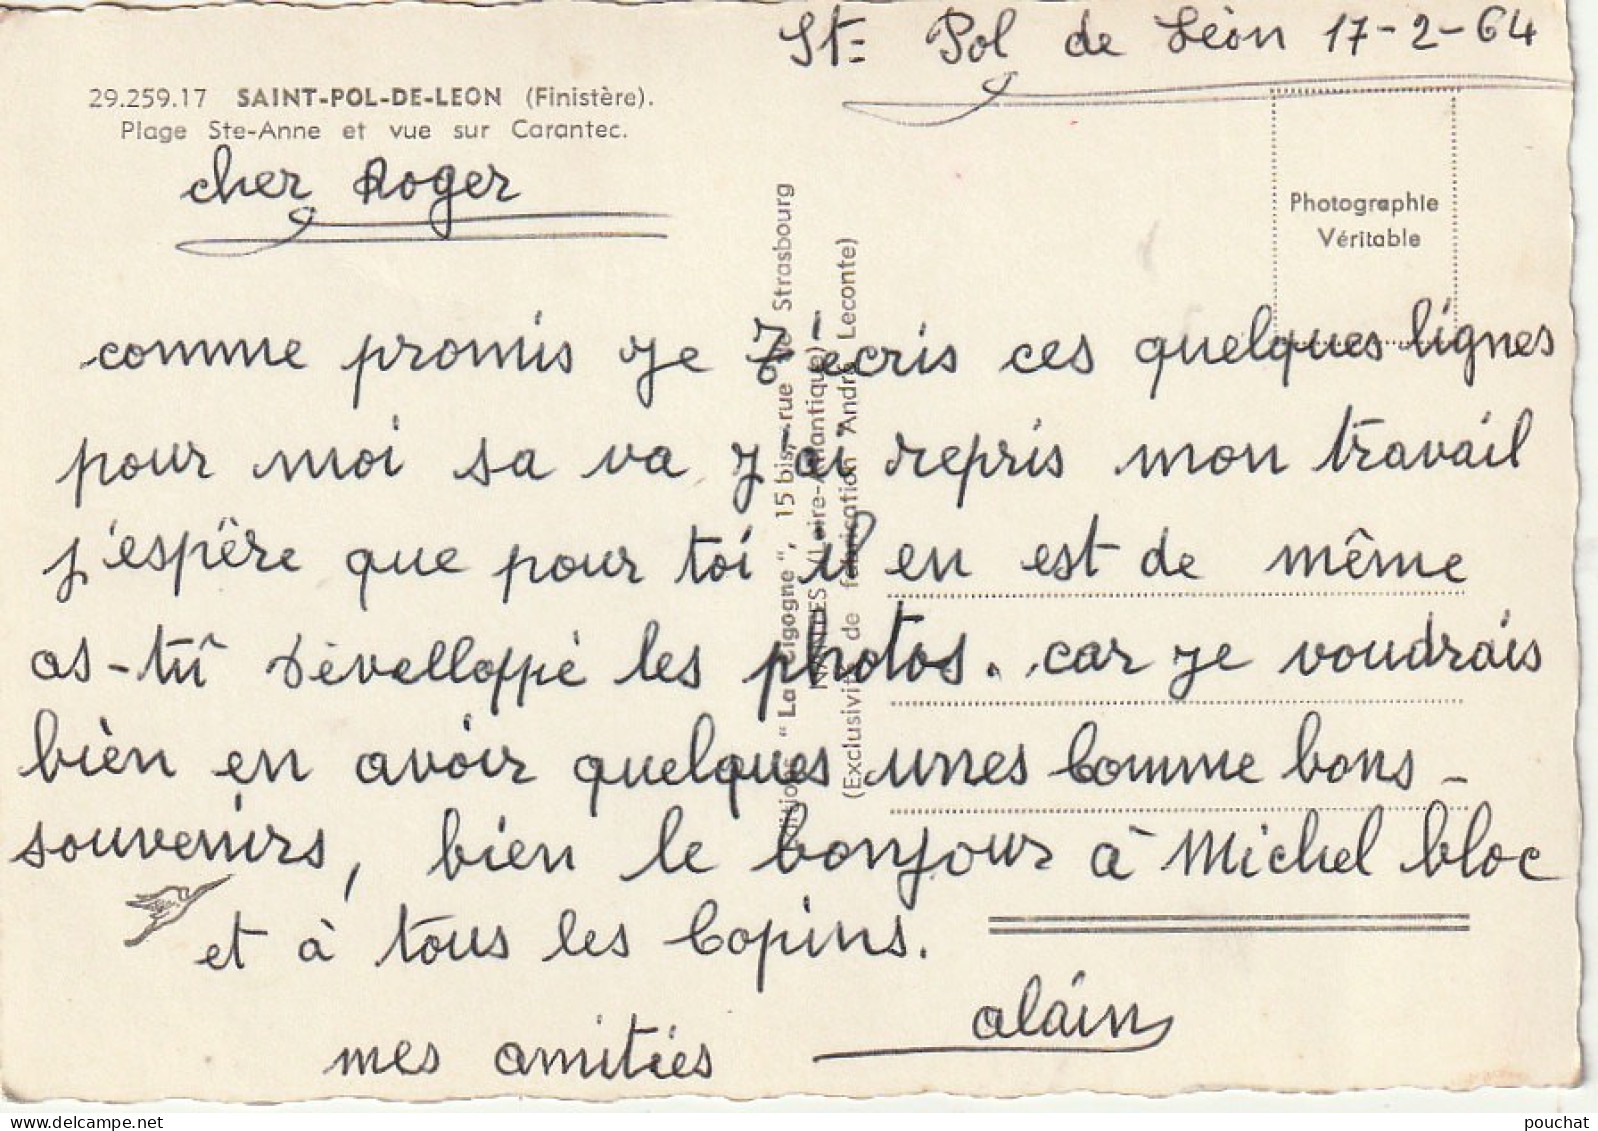 St= Pol de Léon 17-2-64
29.259.17 SAINT-POL-DE-LEON (Finistère).
Plage Ste-Anne et vue sur Carantec.
cher Roger
Photographie
Véritable
comme promis je t'écris ces quelques lignes
pour moi sa va j'ai repris mon travail
j'espère que pour toi il en est de même
as-tu dévelloppé les photos. car je voudrais
bien en avoir quelques unes comme bons-
souvenirs, bien le bonjour à Michel bloc
et à tous les copins.
mes amitiés
alain
Editions "La Cigogne", 15 bis, rue de Strasbourg
NANTES (Loire-Atlantique)
(Exclusivité de fabrication André Leconte)
pouchat